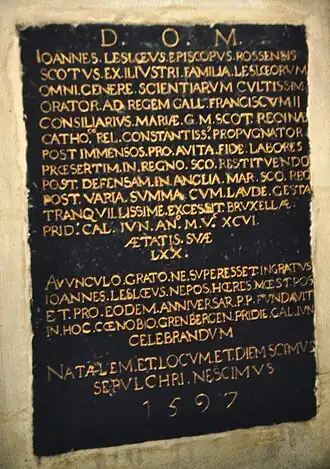 D. O. M.
IOANNES. LESLŒVS. EPISCOPVS. ROSSENSIS
SCOTVS. EX. ILLVSTRI. FAMILIA. LESLŒORVM
OMNI. GENERE. SCIENTIARVM. CVLTISSIM
ORATOR. AD. REGEM. GALL. FRANCISCVM. II
CONSILIARIVS. MARIÆ. G. M. SCOT. REGINÆ
CATHO.CÆ REL. CONSTANTISS.S PROPVGNATOR
POST. IMMENSOS. PRO. AVITA. FIDE. LABORES
PRÆSERTIM. IN. REGNO. SCO. RESTITVENDO
POST. DEFENSAM. IN. ANGLIA. MAR. SCO. REG
POST. VARIA. SVMMA. CVM. LAVDE. GESTA
TRANQVILLISSIME. EXCESSIT. BRVXELLÆ
PRID. CAL. IVN. AN. M. V. XCVI.
ÆTATIS. SVÆ
LXX.
AVVNCVLO. GRATO. NE. SVPERESSET. INGRATVS
IOANNES. LESLŒVS. NEPOS. HŒRES. MŒST. POS
ET. PRO. EODEM. ANNIVERSAR. P. P. FVNDAVIT
IN. HOC. CŒNOBIO. GRENBERGEN. PRIDIE. CAL. IVN
CELEBRANDVM
NATALEM. ET. LOCVM. ET. DIEM SCIMVS
SEPVLCHRI. NESCIMVS
1597